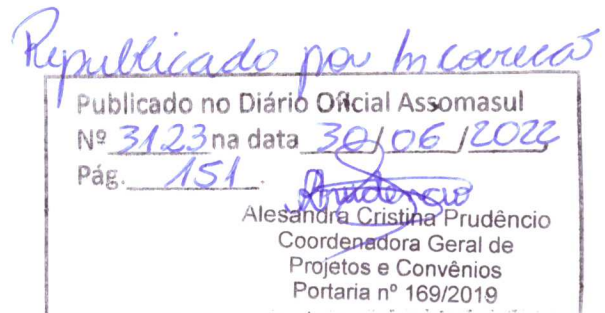 Republicado por Incorreção
Publicado no Diário Oficial Assomasul
Nº 3123 na data 30/06/2022
Pág. 151.
Prudêncio
Alesandra Cristina Prudêncio
Coordenadora Geral de
Projetos e Convênios
Portaria nº 169/2019